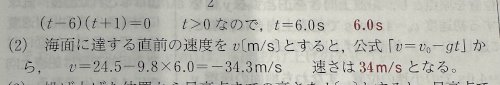 2
(t−6)(t+1)=0　t>0なので，t=6.0s　6.0s
(2)　海面に達する直前の速度をv[m/s]とすると，公式「v=v₀−gt」か
ら，　v=24.5−9.8×6.0=−34.3m/s　速さは34m/sとなる。